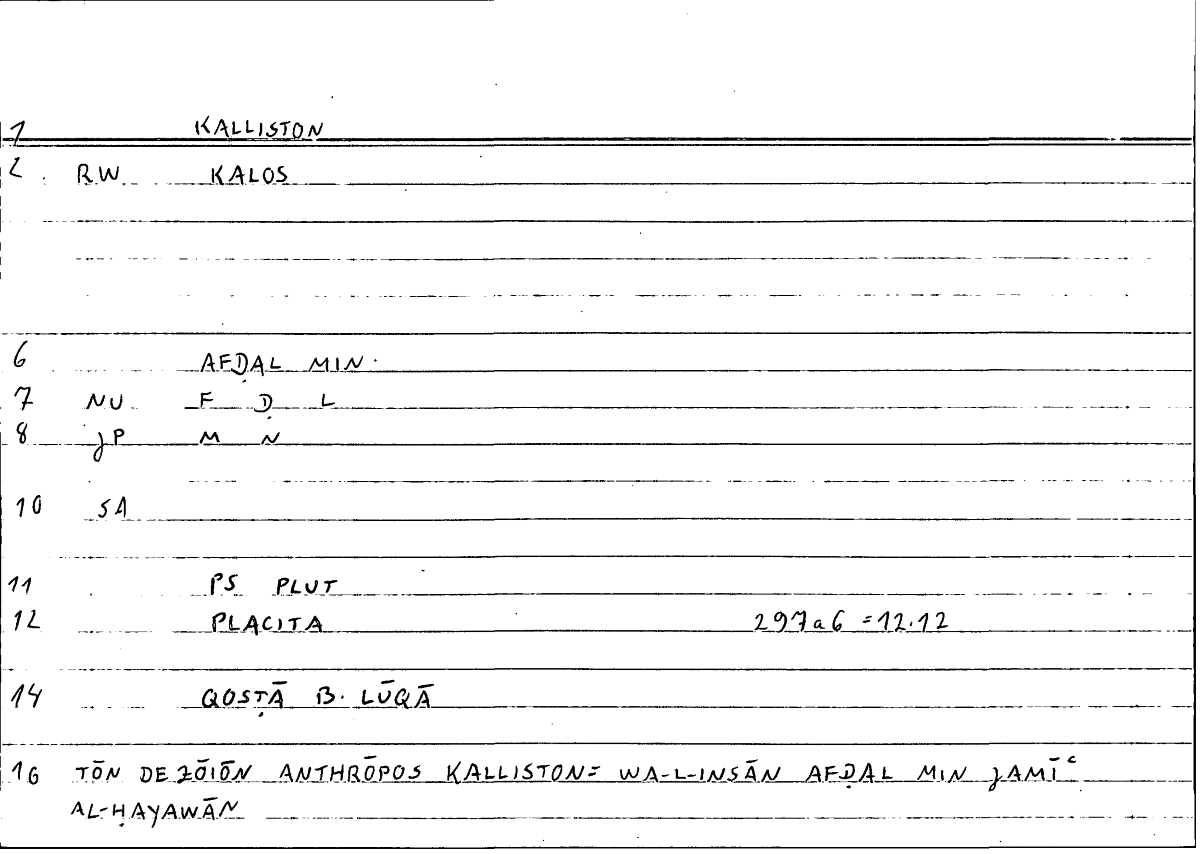 1 KALLISTON
2 RW KALOS
6 AFḌAL MIN.
7 NU F Ḍ L
8 JP M N
10 SA
11 PS PLUT
12 PLACITA 297a6 = 12.12
14 QOSṬĀ B. LŪQĀ
16 TŌN DE ZŌIŌN ANTHRŌPOS KALLISTON = WA-L-INSĀN AFḌAL MIN JAMĪʿ
AL-ḤAYAWĀN